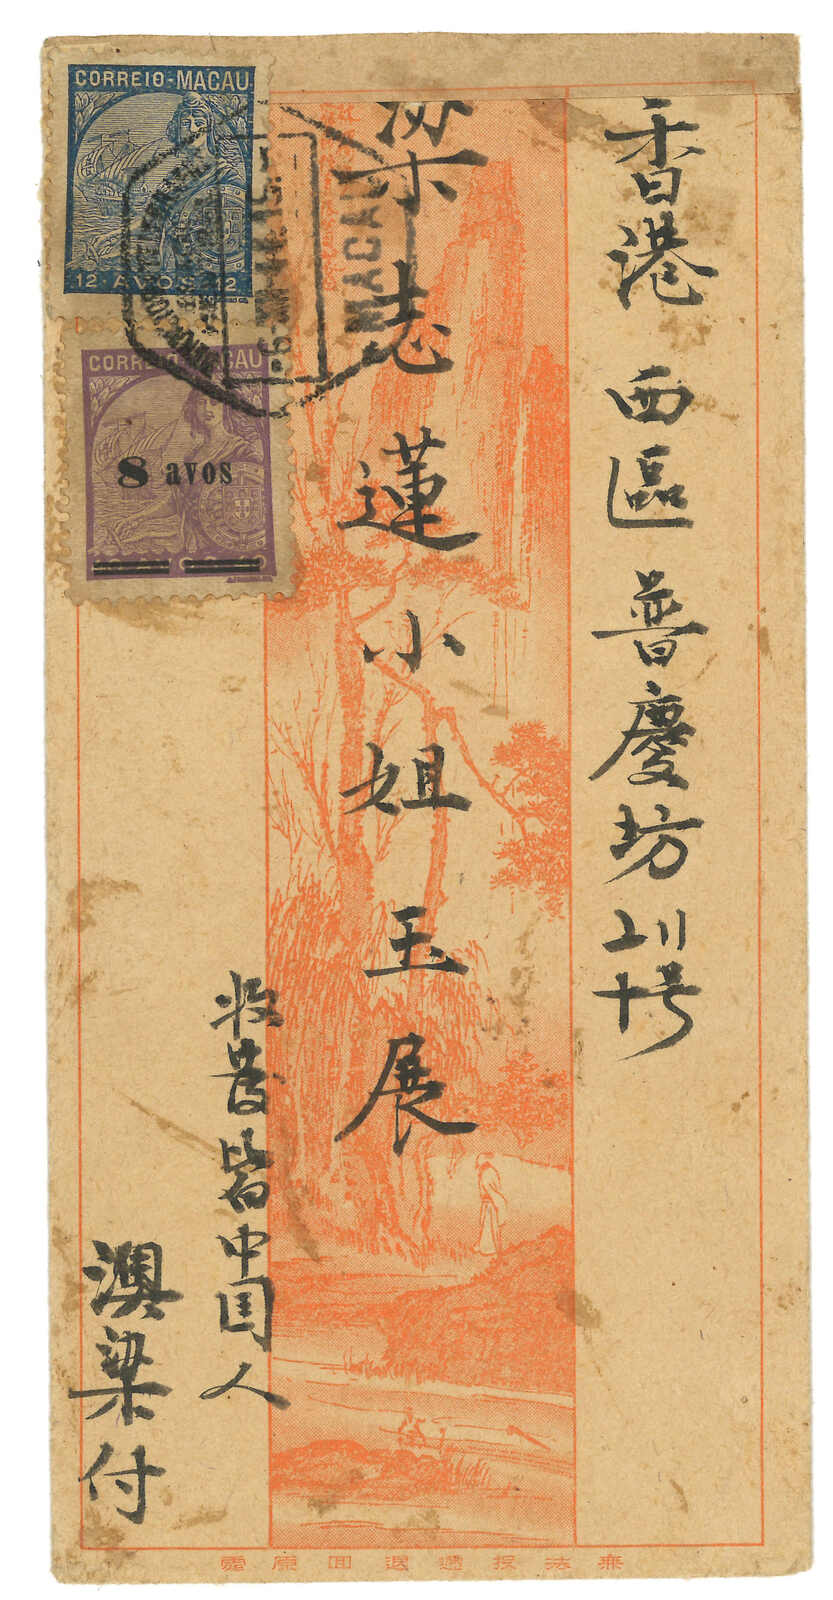 香港西區普慶坊二川十号
梁志蓮小姐玉展
收發皆中国人
澳梁付
CORREIO-MACAU
12 AVOS 12
CORREIO-MACAU
8 avos
MACAU
無法投遞退回原處